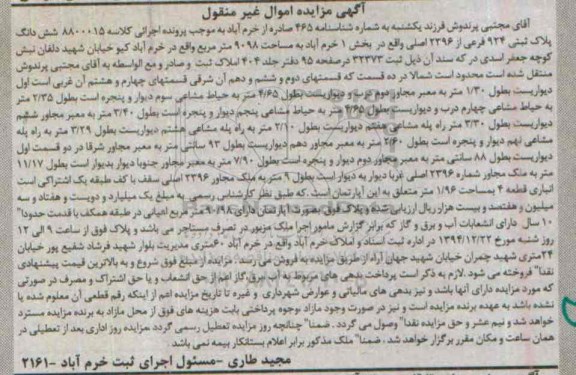 آگهی مزایده اموال غیر منقول
آقای مجتبی پرندوش فرزند یکشنبه به شماره شناسنامه ۴۶۵ صادره از خرم آباد به موجب پرونده اجرائی کلاسه ۸۸۰۰۰۱۵ شش دانگ
پلاک ثبتی ۹۲۴ فرعی از ۲۳۹۶ اصلی واقع در بخش ۱ خرم آباد به مساحت ۹۰۹۸ متر مربع واقع در خرم آباد کیو خیابان شهید دلفان نبش
کوچه جعفر اسدی در که سند آن ذیل ثبت ۳۲۳۷۳ درصفحه ۹۵ دفتر جلد ۴۰۴ املاک ثبت و صادر و مع الواسطه به آقای مجتبی پرندوش
منتقل شده است محدود است شمالا در ده قسمت که قسمتهای دوم و ششم و دهم آن شرقی قسمتهای چهارم و هشتم آن غربی است اول
دیواریست بطول ۱/۳۰ متر به معبر مجاور دوم درب و دیواریست بطول ۴/۶۵ متر به حیاط مشاعی سوم دیوار و پنجره است بطول ۲/۳۵ متر
به حیاط مشاعی چهارم درب و دیواریست بطول ۴/۶۵ متر به حیاط مشاعی پنجم دیوار و پنجره است بطول ۳/۴۰ متر به معبر مجاور ششم
دیواریست بطول ۳/۳۰ متر راه پله مشاعی هفتم دیواریست بطول ۲/۱۰ متر به راه پله مشاعی هشتم دیواریست بطول ۳/۲۹ متر به راه پله
مشاعی نهم دیوار و پنجره است بطول ۲/۶۰ متر به معبر مجاور دهم دیواریست بطول ۹۳ سانتی متر به معبر مجاور شرقا در دو قسمت اول
دیواریست بطول ۸۸ سانتی متر به معبر مجاور دوم دیوار و پنجره است بطول ۷/۹۰ متر به معبر مجاور جنوبا دیوار بدیوار است بطول ۱۱/۱۷
متر به ملک مجاور شماره ۲۳۹۶ اصلی غربا دیوار به دیوار است بطول ۹ متر به ملک مجاور ۲۳۹۶ اصلی سقف با کف طبقه یک اشتراکی است
انباری قطعه ۴ بمساحت ۱/۹۶ متر متعلق به این آپارتمان است .که طبق نظر کارشناس رسمی به مبلغ یک میلیارد و دویست و هفتاد و سه
میلیون و هفتصد و بیست هزار ریال ارزیابی شده و پلاک فوق بصورت آپارتمان دارای ۹۰.۹۸ متر مربع اعیانی در طبقه همکف با قدمت حدودا"
۱۰ سال دارای انشعابات آب و برق و گاز که برابر گزارش مامور اجرا ملک مزبور در تصرف مستاجر می باشد و پلاک فوق از ساعت ۹ الی ۱۲
روز شنبه مورخ ۱۳۹۴/۱۲/۲۲ در اداره ثبت اسناد و املاک خرم آباد واقع در خرم آباد ۶۰متری مدیریت بلوار شهید فرشاد شفیع پور خیابان
۲۴متری شهید چمران خیابان شهید جهان آراء از طریق مزایده به فروش می رسد. مزایده از مبلغ فوق شروع و به بالاترین قیمت پیشنهادی
نقدا" فروخته می شود .لازم به ذکر است پرداخت بدهی های مربوط به آب، برق، گاز اعم از حق انشعاب و یا حق اشتراک و مصرف در صورتی
که مورد مزایده دارای آنها باشد و نیز بدهی های مالیاتی و عوارض شهرداری و غیره تا تاریخ مزایده اعم از اینکه رقم قطعی آن معلوم شده یا
نشده باشد به عهده برنده مزایده است و نیز در صورت وجود مازاد وجوه پرداختی بابت هزینه های فوق از محل مازاد به برنده مزایده مسترد
خواهد شد و نیم عشر و حق مزایده نقدا" وصول می گردد . ضمنا" چنانچه روز مزایده تعطیل رسمی گردد ،مزایده روز اداری بعد از تعطیلی در
همان ساعت و مکان مقرر برگزار خواهد شد ، ضمنا" ملک مذکور برابر اعلام بستانکار بیمه نمی باشد .
مجید طاری -مسئول اجرای ثبت خرم آباد -۲۱۶۱